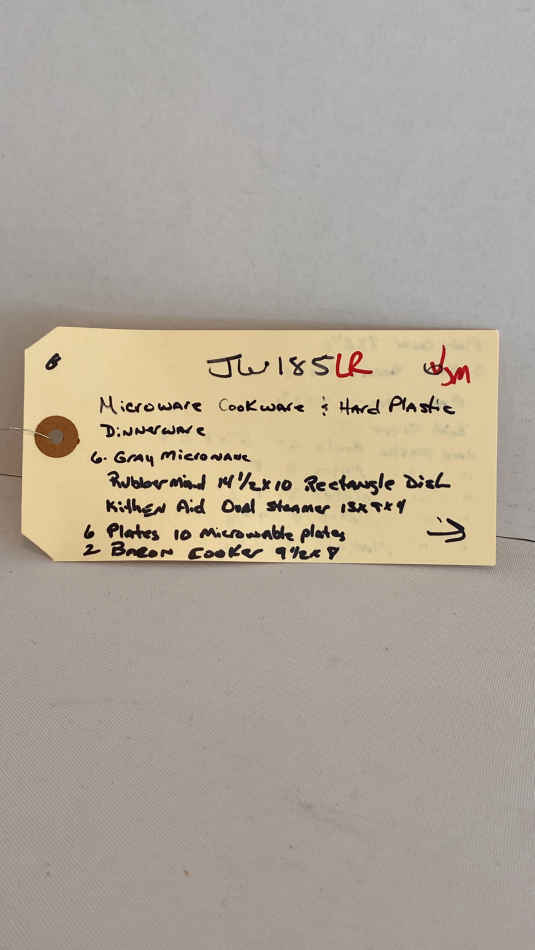 JW185LR JM
Microware Cookware & Hard Plastic
Dinnerware
6. Gray Microwave
Rubbermind 14 1/2 x 10 Rectangle Dish
Kithen Aid Oval Steamer 13 x 9 x 4
6 Plates 10 Microwable plates
2 Bacon Cooker 9 1/2 x 8